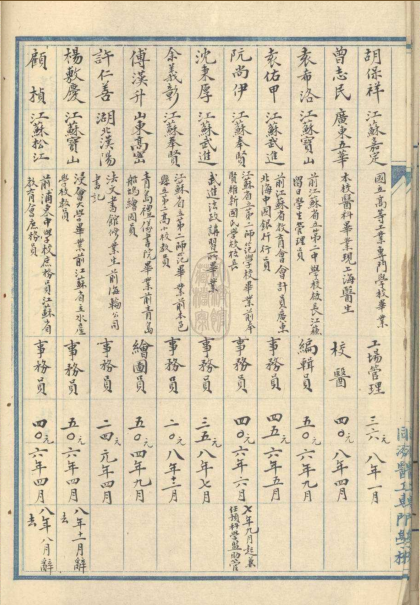 胡保祥 江蘇嘉定 國立高等工業專門學校畢業 工場管理 三六元 八年一月
曾志民 廣東五華 本校醫科畢業現上海醫生 校醫 四〇元 八年四月
袁希洛 江蘇寶山 前江蘇省立第二中學校校長江蘇留日學生管理員 編輯員 五〇元 六年九月
袁佑甲 江蘇武進 前江蘇省教育會會計員廣東北海中國銀行行員 事務員 四五元 六年五月
阮尚伊 江蘇奉賢 江蘇省立第二師范學校畢業前奉賢維新國民學校校長 事務員 四〇元 六年六月 七年九月起兼任預科學監助管
沈東厚 江蘇武進 武進法政講習所畢業 事務員 三五元 八年七月
余義彰 江蘇奉賢 江蘇省立第二師范畢業前本邑縣立第二高小校教員 事務員 二〇元 八年十二月
傅漢升 山東高密 青島禮賢書院畢業前青島船塢繪圖員 繪圖員 五〇元 四年九月
許仁善 湖北漢陽 法文書館修業生前海輪公司書記 事務員 二四元 元年四月
楊敷慶 江蘇寶山 浸會大學畢業前江蘇省立水產學校教員 事務員 五〇元 六年四月 八年十一月辭去
顧楨 江蘇松江 前浦東中學校庶務員江蘇省教育會庶務員 事務員 四〇元 六年四月 八年八月辭去
同濟醫工專門學校